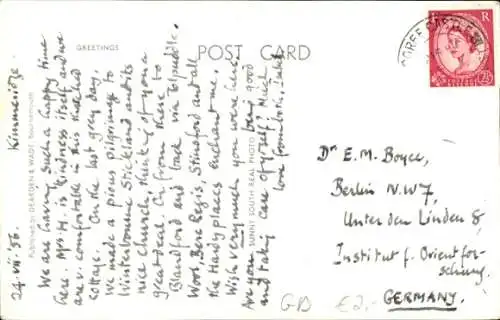 GREETINGS
POST CARD
24.vii.56. Kimmeridge.
We are having such a happy time
here. Mrs. H. is kindness itself and we
are v. comfortable in this thatched
cottage. On the last grey day,
we made a pious pilgrimage to
Winterbourne Stickland and its
nice church, thinking of you a
great deal. On from there to
Blandford and back via Tolpuddle.
Wool, Bere Regis, Stinsford and all
the Hardy places enchant me.
Wish very much you were here.
Are you being good
and taking care of yourself? Much
love from both.
PUBLISHED BY DEARDEN & WADE, BOURNEMOUTH
SUNNY SOUTH REAL PHOTO
E R
2½D
Dr E. M. Boyce,
Berlin N.W 7,
Unter den Linden 8
Institut f. Orientfor-
schung.
GERMANY.
GB £2,-